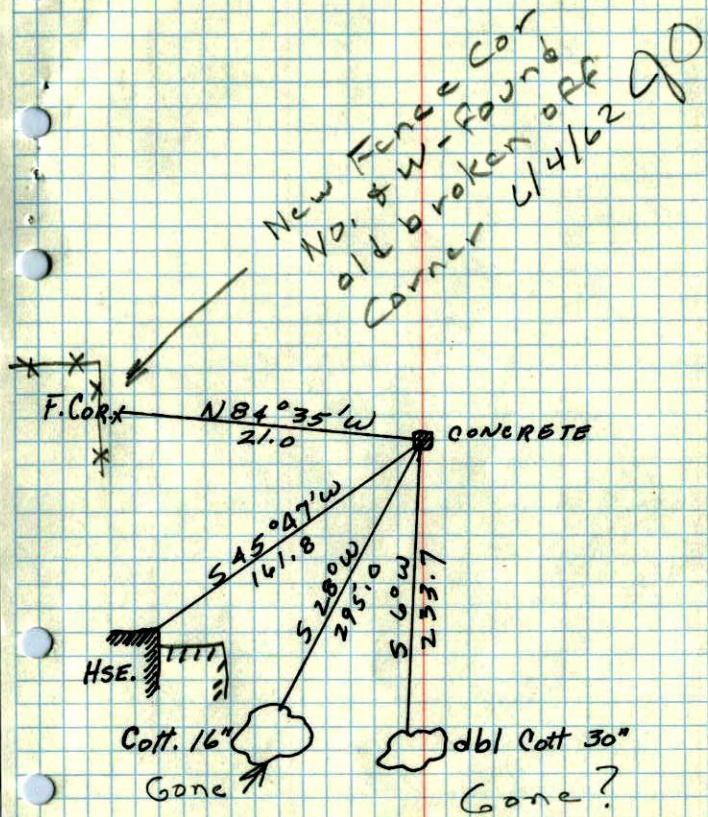 New Fence Cor
No. & W - Found
old broken off
Corner 6/4/62
F. COR.
N 84° 35' W
21.0
CONCRETE
S 45° 47' W
161.8
S 28° W
295.0
S 6° W
233.7
HSE.
Cott. 16"
Gone
dbl Cott 30"
Gone ?